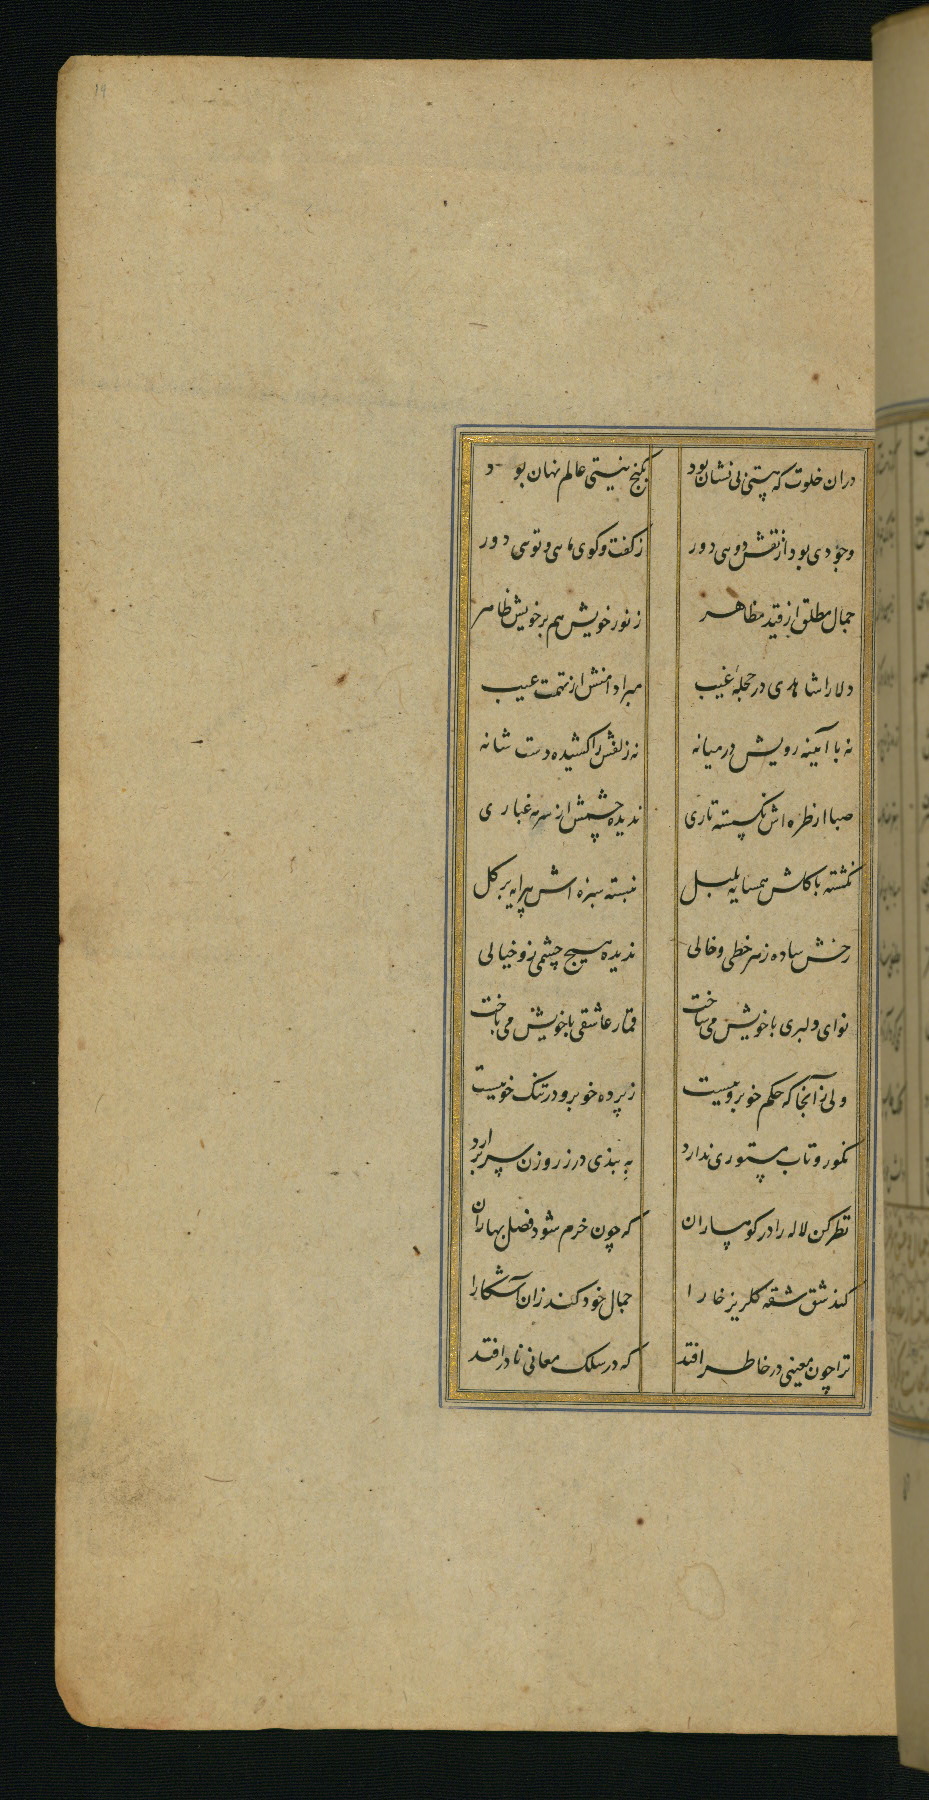 دران خلوت که هستی بی نشان بود بکنج نیستی عالم نهان بود
وجودی بود از نقش دوسی دور زکفت وکوی ماسی وتوسی دور
جمال مطلق از قید مظاهر زنور خویش هم بر خویش ظاهر
دلارا شاهدی در حجلهٔ غیب مبرا دامنش از تهمت عیب
نه با آیینه رویش درمیانه نه زلفش را کشیده دست شانه
صبا از طره اش نکسسته تاری ندیده چشمش از سرمه غباری
نکشته با کلش همسایه بلبل نبسته سبزه اش پیرایه بر کل
رخش ساده زهر خطی وخالی ندیده هیچ چشمی زو خیالی
نوای دلبری با خویش می ساخت قمار عاشقی با خویش می باخت
ولی زآنجا که حکم خوبرویست زپرده خوبرو در تنک خویست
نکورو تاب مستوری ندارد به بندی در ز روزن سر برارد
نظر کن لاله را در کوهساران که چون خرم شود فصل بهاران
کند شق شقه کلریز خارا جمال خود کند زان آشکارا
ترا چون معینی در خاطر افتد که در سلک معانی نادر افتد